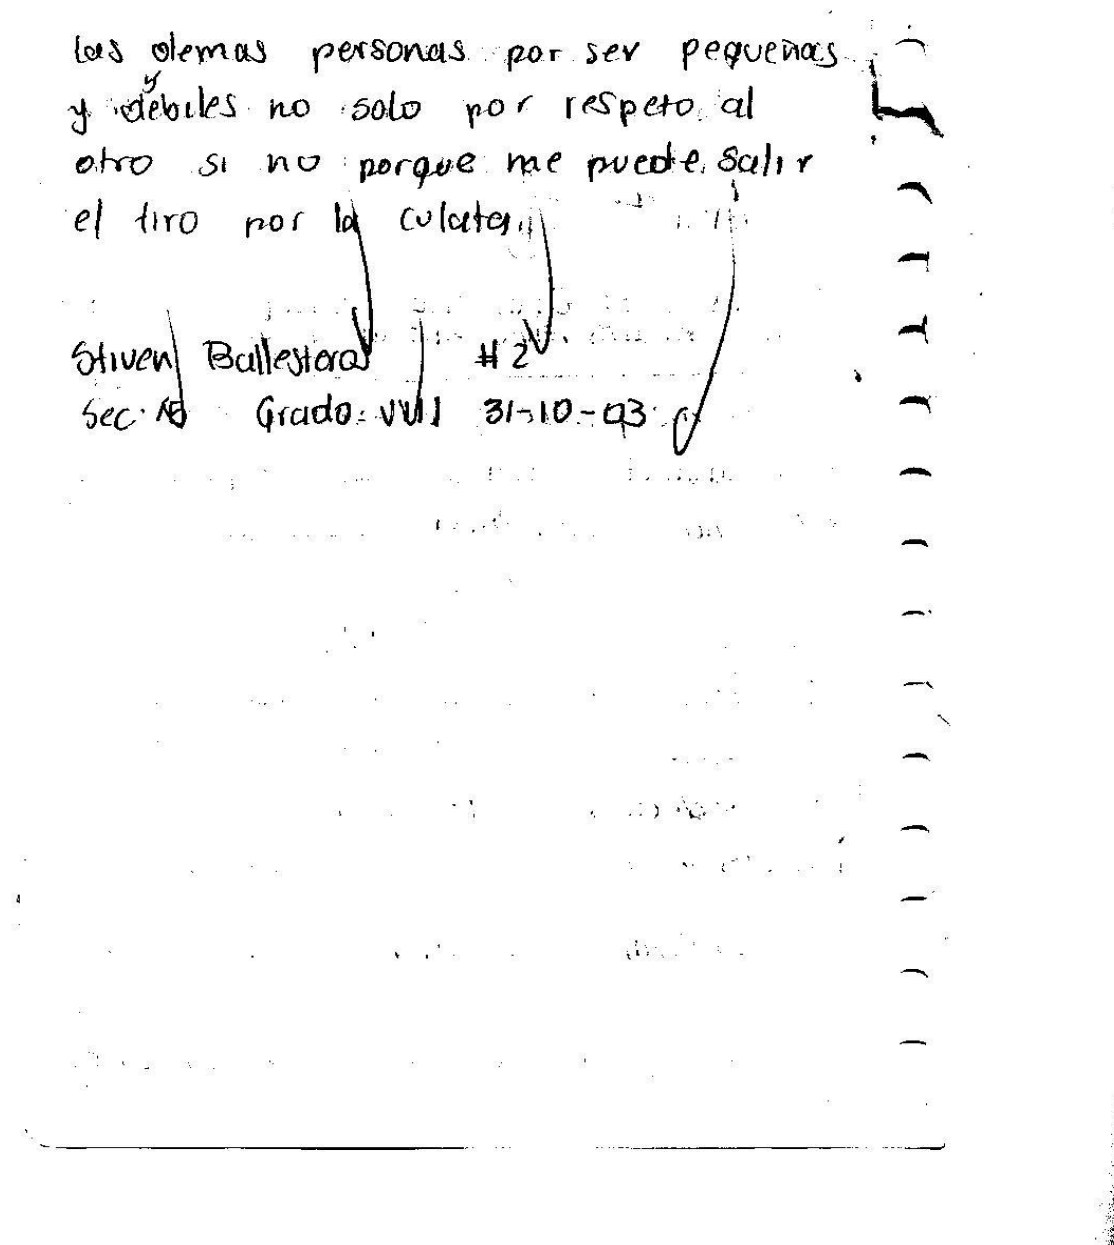 las demas personas por ser pequeñas
y
y debiles no solo por respeto al
otro si no porque me puede salir
el tiro por la culata.
Stiven Ballesteros #2
Sec. Grado: VIII 31-10-03